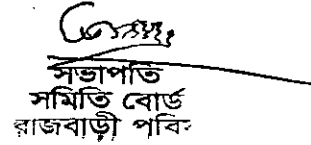 সভাপতি
সমিতি বোর্ড
রাজবাড়ী পবিস